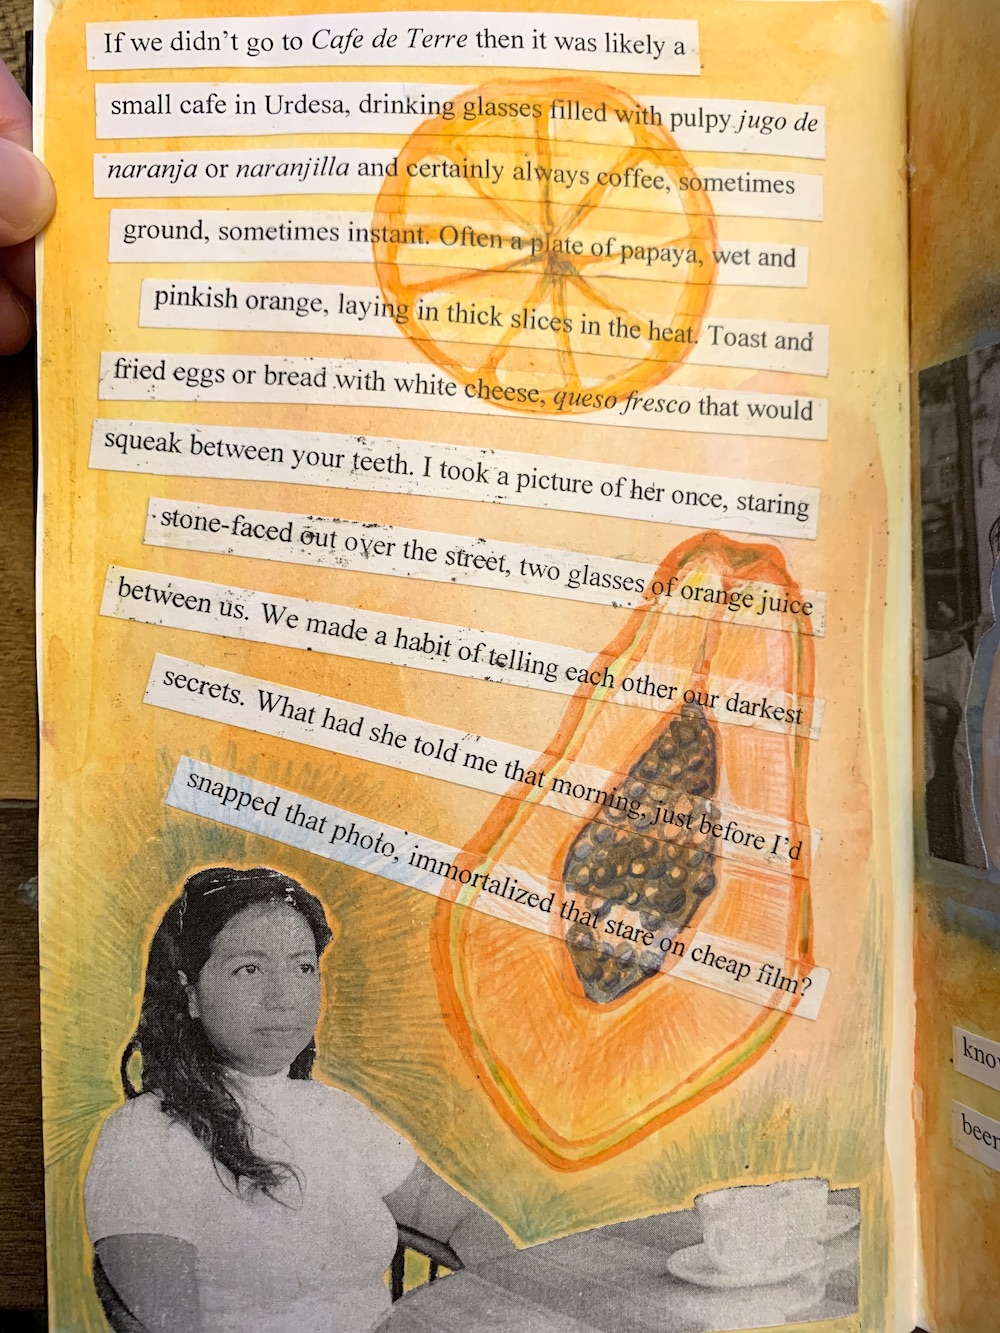 If we didn't go to Cafe de Terre then it was likely a
small cafe in Urdesa, drinking glasses filled with pulpy jugo de
naranja or naranjilla and certainly always coffee, sometimes
ground, sometimes instant. Often a plate of papaya, wet and
pinkish orange, laying in thick slices in the heat. Toast and
fried eggs or bread with white cheese, queso fresco that would
squeak between your teeth. I took a picture of her once, staring
stone-faced out over the street, two glasses of orange juice
between us. We made a habit of telling each other our darkest
secrets. What had she told me that morning, just before I'd
snapped that photo, immortalized that stare on cheap film?
been